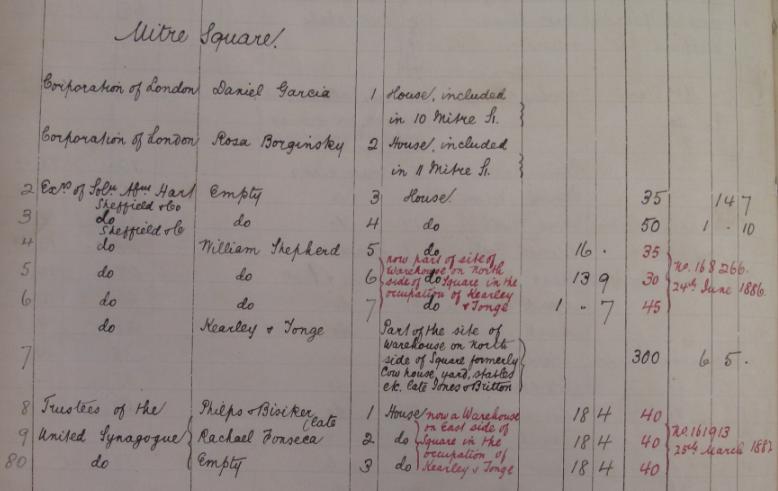 Mitre Square.
Corporation of London Daniel Garcia 1 House, included
in 10 Mitre St.
Corporation of London Rosa Borginsky 2 House, included
in 11 Mitre St.
2 Exrs of Soln Abm Hart Empty 3 House 35 14 7
Sheffield & Co
3 do do 4 do 50 1 . 10
Sheffield & Co
4 do William Shepherd 5 do 16 . 35
now part of site of
5 do do 6 Warehouse on North 13 9 30 No. 168266.
side of do Square in the 24th June 1886.
occupation of Kearley
6 do do 7 do & Tonge 1 . 7 45
do Kearley & Tonge Part of the site of
Warehouse on North
7 side of Square formerly 300 6 5 .
Cow house, yard, stables
etc. late Jones & Britton
8 Trustees of the Phelps & Bisiker (late 1 House now a Warehouse 18 4 40
on East side of
9 United Synagogue Rachael Fonseca 2 do Square in the 18 4 40 No. 161913
occupation of 25th March 1882
80 do Empty 3 do Kearley & Tonge 18 4 40